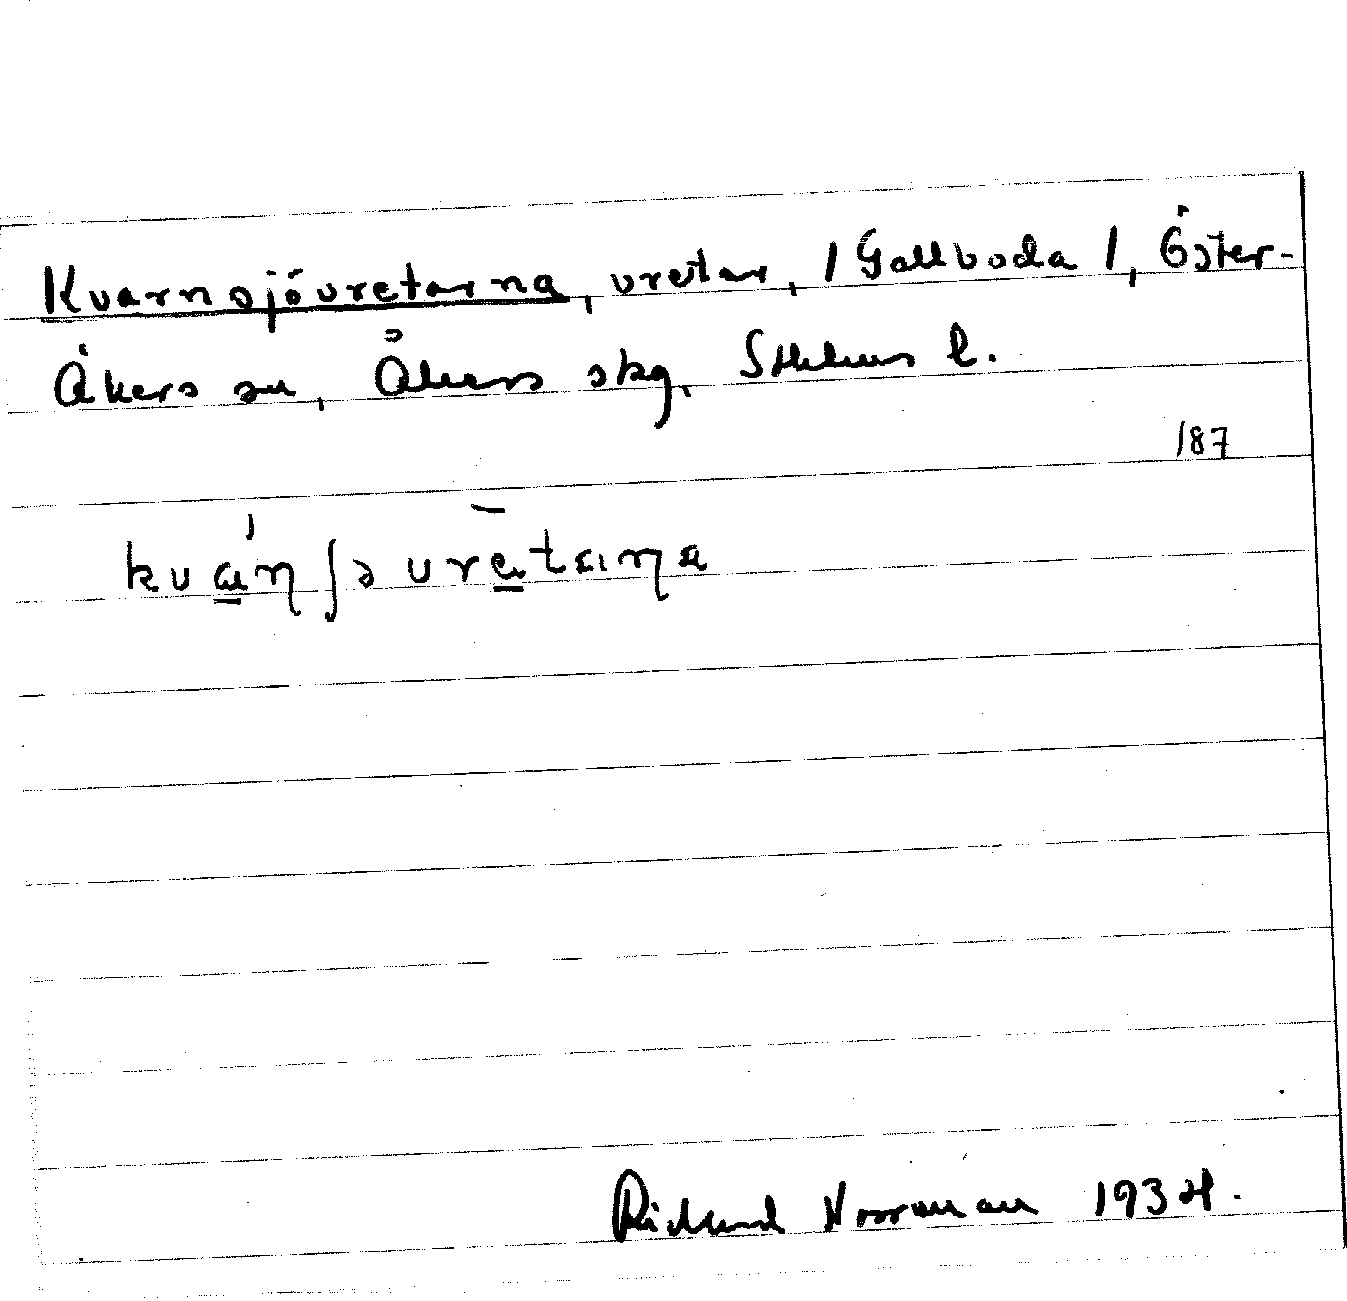 Kvarnsjövretarna, vretar, / Gallboda /, Öster-
Åkers sn, Åkers skg, Sthlms l.
187
kvá̱ɳʃəvrētaɳa
Rickard Norrman 1934.